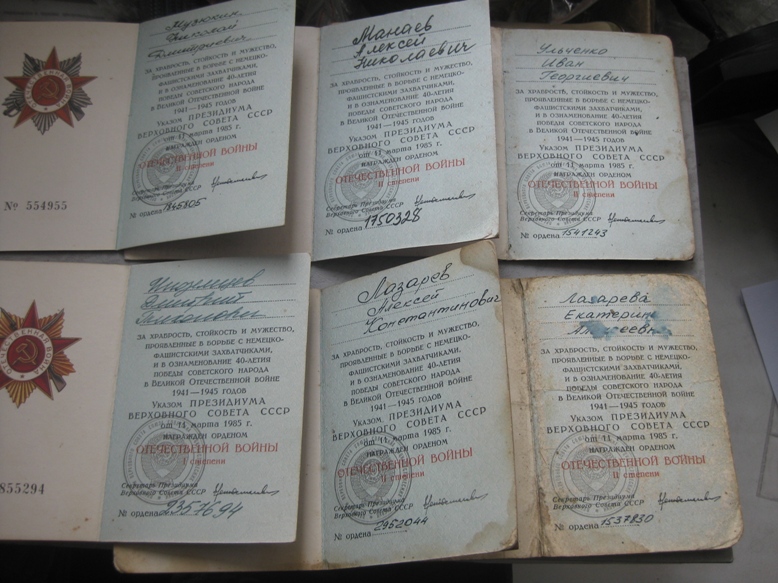 № 554955
Музюкин
Николай
Дмитриевич
ЗА ХРАБРОСТЬ, СТОЙКОСТЬ И МУЖЕСТВО,
ПРОЯВЛЕННЫЕ В БОРЬБЕ С НЕМЕЦКО-
ФАШИСТСКИМИ ЗАХВАТЧИКАМИ,
И В ОЗНАМЕНОВАНИЕ 40-ЛЕТИЯ
ПОБЕДЫ СОВЕТСКОГО НАРОДА
В ВЕЛИКОЙ ОТЕЧЕСТВЕННОЙ ВОЙНЕ
1941—1945 ГОДОВ
УКАЗОМ ПРЕЗИДИУМА
ВЕРХОВНОГО СОВЕТА СССР
от 11 марта 1985 г.
НАГРАЖДЕН ОРДЕНОМ
ОТЕЧЕСТВЕННОЙ ВОЙНЫ
II степени
Секретарь Президиума
Верховного Совета СССР
№ ордена
Манаев
Алексей
Николаевич
ЗА ХРАБРОСТЬ, СТОЙКОСТЬ И МУЖЕСТВО,
ПРОЯВЛЕННЫЕ В БОРЬБЕ С НЕМЕЦКО-
ФАШИСТСКИМИ ЗАХВАТЧИКАМИ,
И В ОЗНАМЕНОВАНИЕ 40-ЛЕТИЯ
ПОБЕДЫ СОВЕТСКОГО НАРОДА
В ВЕЛИКОЙ ОТЕЧЕСТВЕННОЙ ВОЙНЕ
1941—1945 ГОДОВ
УКАЗОМ ПРЕЗИДИУМА
ВЕРХОВНОГО СОВЕТА СССР
от 11 марта 1985 г.
НАГРАЖДЕН ОРДЕНОМ
ОТЕЧЕСТВЕННОЙ ВОЙНЫ
II степени
Секретарь Президиума
Верховного Совета СССР
№ ордена 1750328
Ульченко
Иван
Георгиевич
ЗА ХРАБРОСТЬ, СТОЙКОСТЬ И МУЖЕСТВО,
ПРОЯВЛЕННЫЕ В БОРЬБЕ С НЕМЕЦКО-
ФАШИСТСКИМИ ЗАХВАТЧИКАМИ,
И В ОЗНАМЕНОВАНИЕ 40-ЛЕТИЯ
ПОБЕДЫ СОВЕТСКОГО НАРОДА
В ВЕЛИКОЙ ОТЕЧЕСТВЕННОЙ ВОЙНЕ
1941—1945 ГОДОВ
УКАЗОМ ПРЕЗИДИУМА
ВЕРХОВНОГО СОВЕТА СССР
от 11 марта 1985 г.
НАГРАЖДЕН ОРДЕНОМ
ОТЕЧЕСТВЕННОЙ ВОЙНЫ
II степени
Секретарь Президиума
Верховного Совета СССР
№ ордена 1541243
855294
Дмитрий
ЗА ХРАБРОСТЬ, СТОЙКОСТЬ И МУЖЕСТВО,
ПРОЯВЛЕННЫЕ В БОРЬБЕ С НЕМЕЦКО-
ФАШИСТСКИМИ ЗАХВАТЧИКАМИ,
И В ОЗНАМЕНОВАНИЕ 40-ЛЕТИЯ
ПОБЕДЫ СОВЕТСКОГО НАРОДА
В ВЕЛИКОЙ ОТЕЧЕСТВЕННОЙ ВОЙНЕ
1941—1945 ГОДОВ
УКАЗОМ ПРЕЗИДИУМА
ВЕРХОВНОГО СОВЕТА СССР
от 11 марта 1985 г.
НАГРАЖДЕН ОРДЕНОМ
ОТЕЧЕСТВЕННОЙ ВОЙНЫ
Секретарь Президиума
Верховного Совета СССР
№ ордена 2357694
Лазарев
Алексей
Константинович
ЗА ХРАБРОСТЬ, СТОЙКОСТЬ И МУЖЕСТВО,
ПРОЯВЛЕННЫЕ В БОРЬБЕ С НЕМЕЦКО-
ФАШИСТСКИМИ ЗАХВАТЧИКАМИ,
И В ОЗНАМЕНОВАНИЕ 40-ЛЕТИЯ
ПОБЕДЫ СОВЕТСКОГО НАРОДА
В ВЕЛИКОЙ ОТЕЧЕСТВЕННОЙ ВОЙНЕ
1941—1945 ГОДОВ
УКАЗОМ ПРЕЗИДИУМА
ВЕРХОВНОГО СОВЕТА СССР
от 11 марта 1985 г.
НАГРАЖДЕН ОРДЕНОМ
ОТЕЧЕСТВЕННОЙ ВОЙНЫ
II степени
Секретарь Президиума
Верховного Совета СССР
№ ордена 2952044
Лазарева
Екатерина
ЗА ХРАБРОСТЬ, СТОЙКОСТЬ И МУЖЕСТВО,
ПРОЯВЛЕННЫЕ В БОРЬБЕ С НЕМЕЦКО-
ФАШИСТСКИМИ ЗАХВАТЧИКАМИ,
И В ОЗНАМЕНОВАНИЕ 40-ЛЕТИЯ
ПОБЕДЫ СОВЕТСКОГО НАРОДА
В ВЕЛИКОЙ ОТЕЧЕСТВЕННОЙ ВОЙНЕ
1941—1945 ГОДОВ
УКАЗОМ ПРЕЗИДИУМА
ВЕРХОВНОГО СОВЕТА СССР
от 11 марта 1985 г.
НАГРАЖДЕН ОРДЕНОМ
ОТЕЧЕСТВЕННОЙ ВОЙНЫ
II степени
Секретарь Президиума
Верховного Совета СССР
№ ордена 1537830